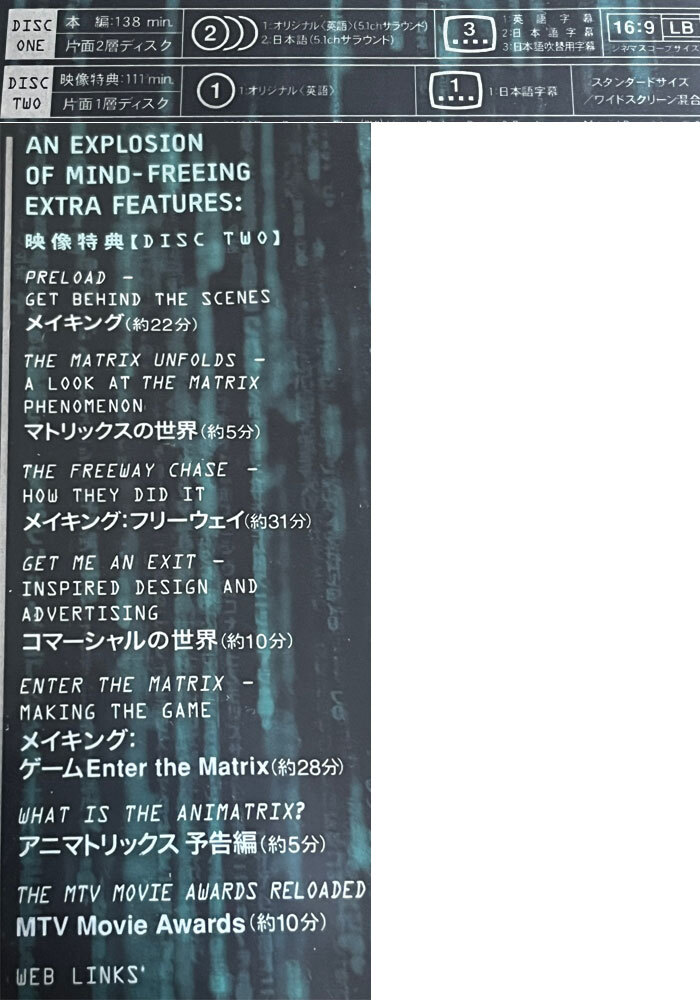 DISC ONE
本 編:138 min.
片面2層ディスク
2
1:オリジナル〈英語〉(5.1chサラウンド)
2:日本語(5.1chサラウンド)
3
1:英語字幕
2:日本語字幕
3:日本語吹替用字幕
16:9 LB
シネマスコープサイズ
DISC TWO
映像特典:111 min.
片面1層ディスク
1
1:オリジナル〈英語〉
1
1:日本語字幕
スタンダードサイズ
/ワイドスクリーン混合
AN EXPLOSION
OF MIND-FREEING
EXTRA FEATURES:
映像特典【DISC TWO】
PRELOAD –
GET BEHIND THE SCENES
メイキング(約22分)
THE MATRIX UNFOLDS –
A LOOK AT THE MATRIX
PHENOMENON
マトリックスの世界(約5分)
THE FREEWAY CHASE –
HOW THEY DID IT
メイキング:フリーウェイ(約31分)
GET ME AN EXIT –
INSPIRED DESIGN AND
ADVERTISING
コマーシャルの世界(約10分)
ENTER THE MATRIX –
MAKING THE GAME
メイキング:
ゲームEnter the Matrix(約28分)
WHAT IS THE ANIMATRIX?
アニマトリックス 予告編(約5分)
THE MTV MOVIE AWARDS RELOADED
MTV Movie Awards(約10分)
WEB LINKS*